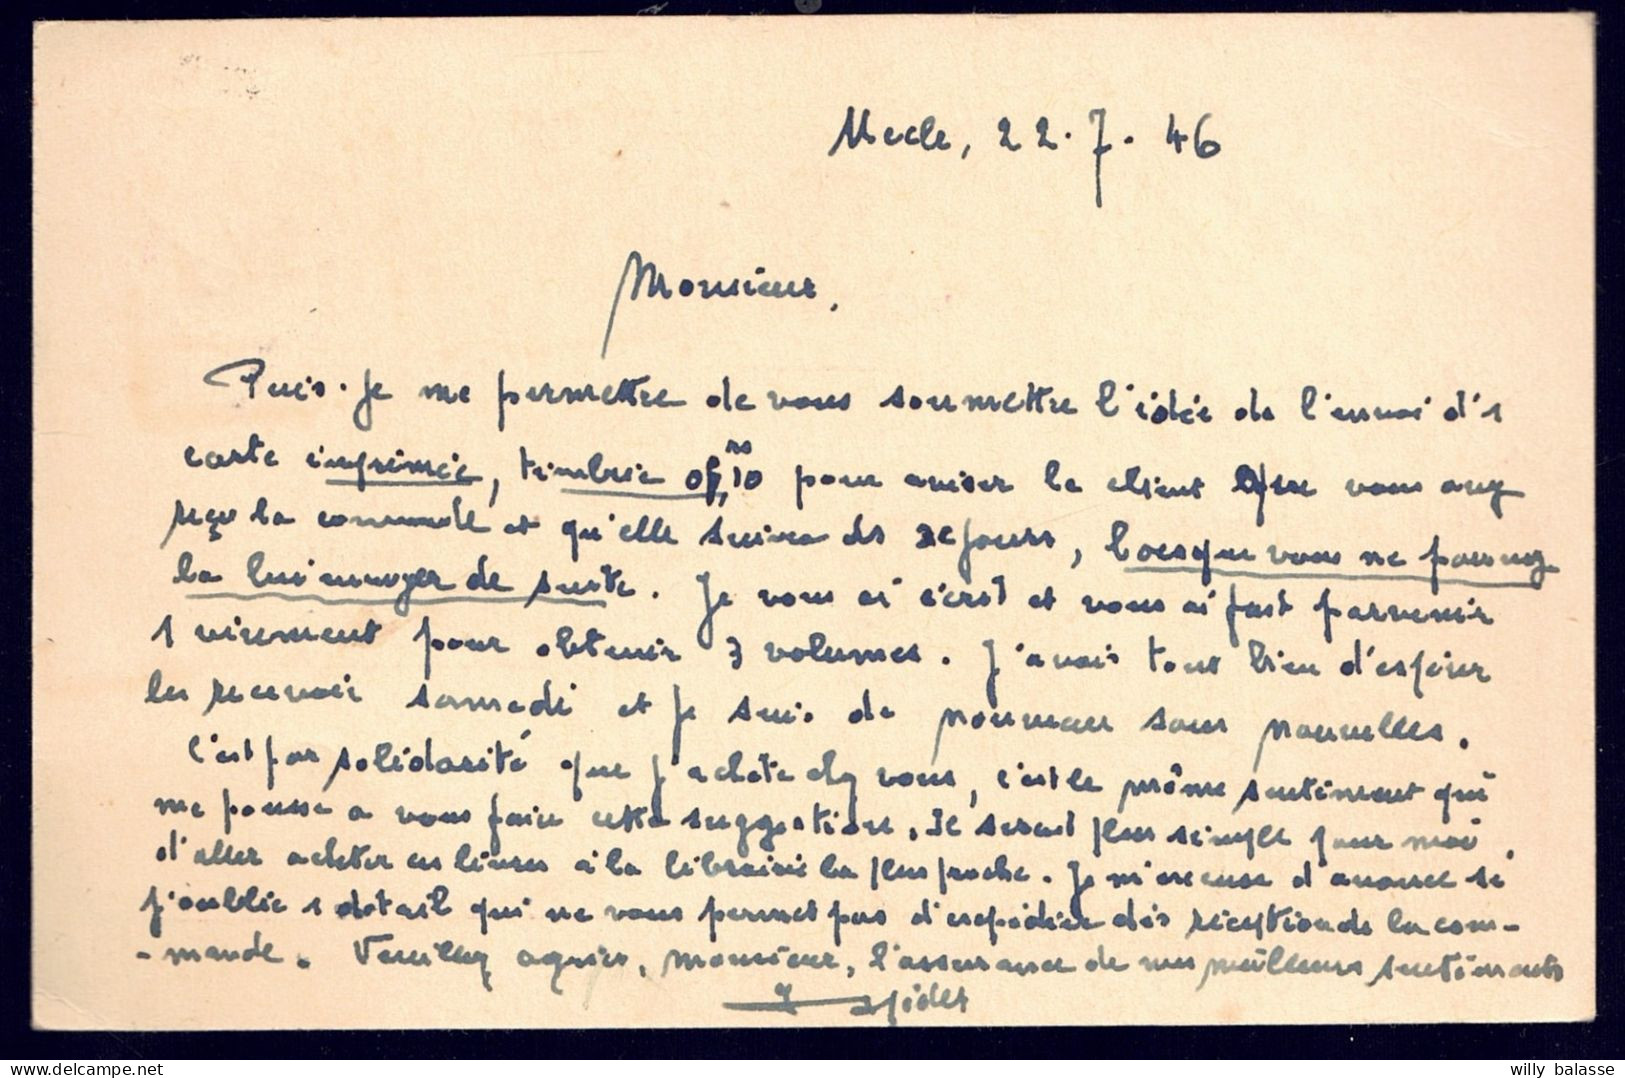 Uccle, 22.7.46
Monsieur,
Puis-je me permettre de vous soumettre l'idée de l'envoi d'1
carte imprimée, timbrée 0f,10 pour aviser le client que vous avez
reçu la commande et qu'elle suivra ds jours, lorsque vous ne pouvez
la lui envoyer de suite. Je vous ai écrit et vous ai fait parvenir
1 virement pour obtenir 3 volumes. J'avais tout lieu d'espérer
les recevoir samedi et je suis de nouveau sans nouvelles.
C'est par solidarité que j'achète chez vous, c'est le même sentiment qui
me pousse à vous faire cette suggestion. Il serait plus simple pour moi
d'aller acheter ces livres à la librairie la plus proche. Je m'excuse d'avance si
j'oublie 1 détail qui ne vous permet pas d'expédier dès réception de la com-
-mande. Veuillez agréer, monsieur, l'assurance de mes meilleurs sentiments
willy balasse